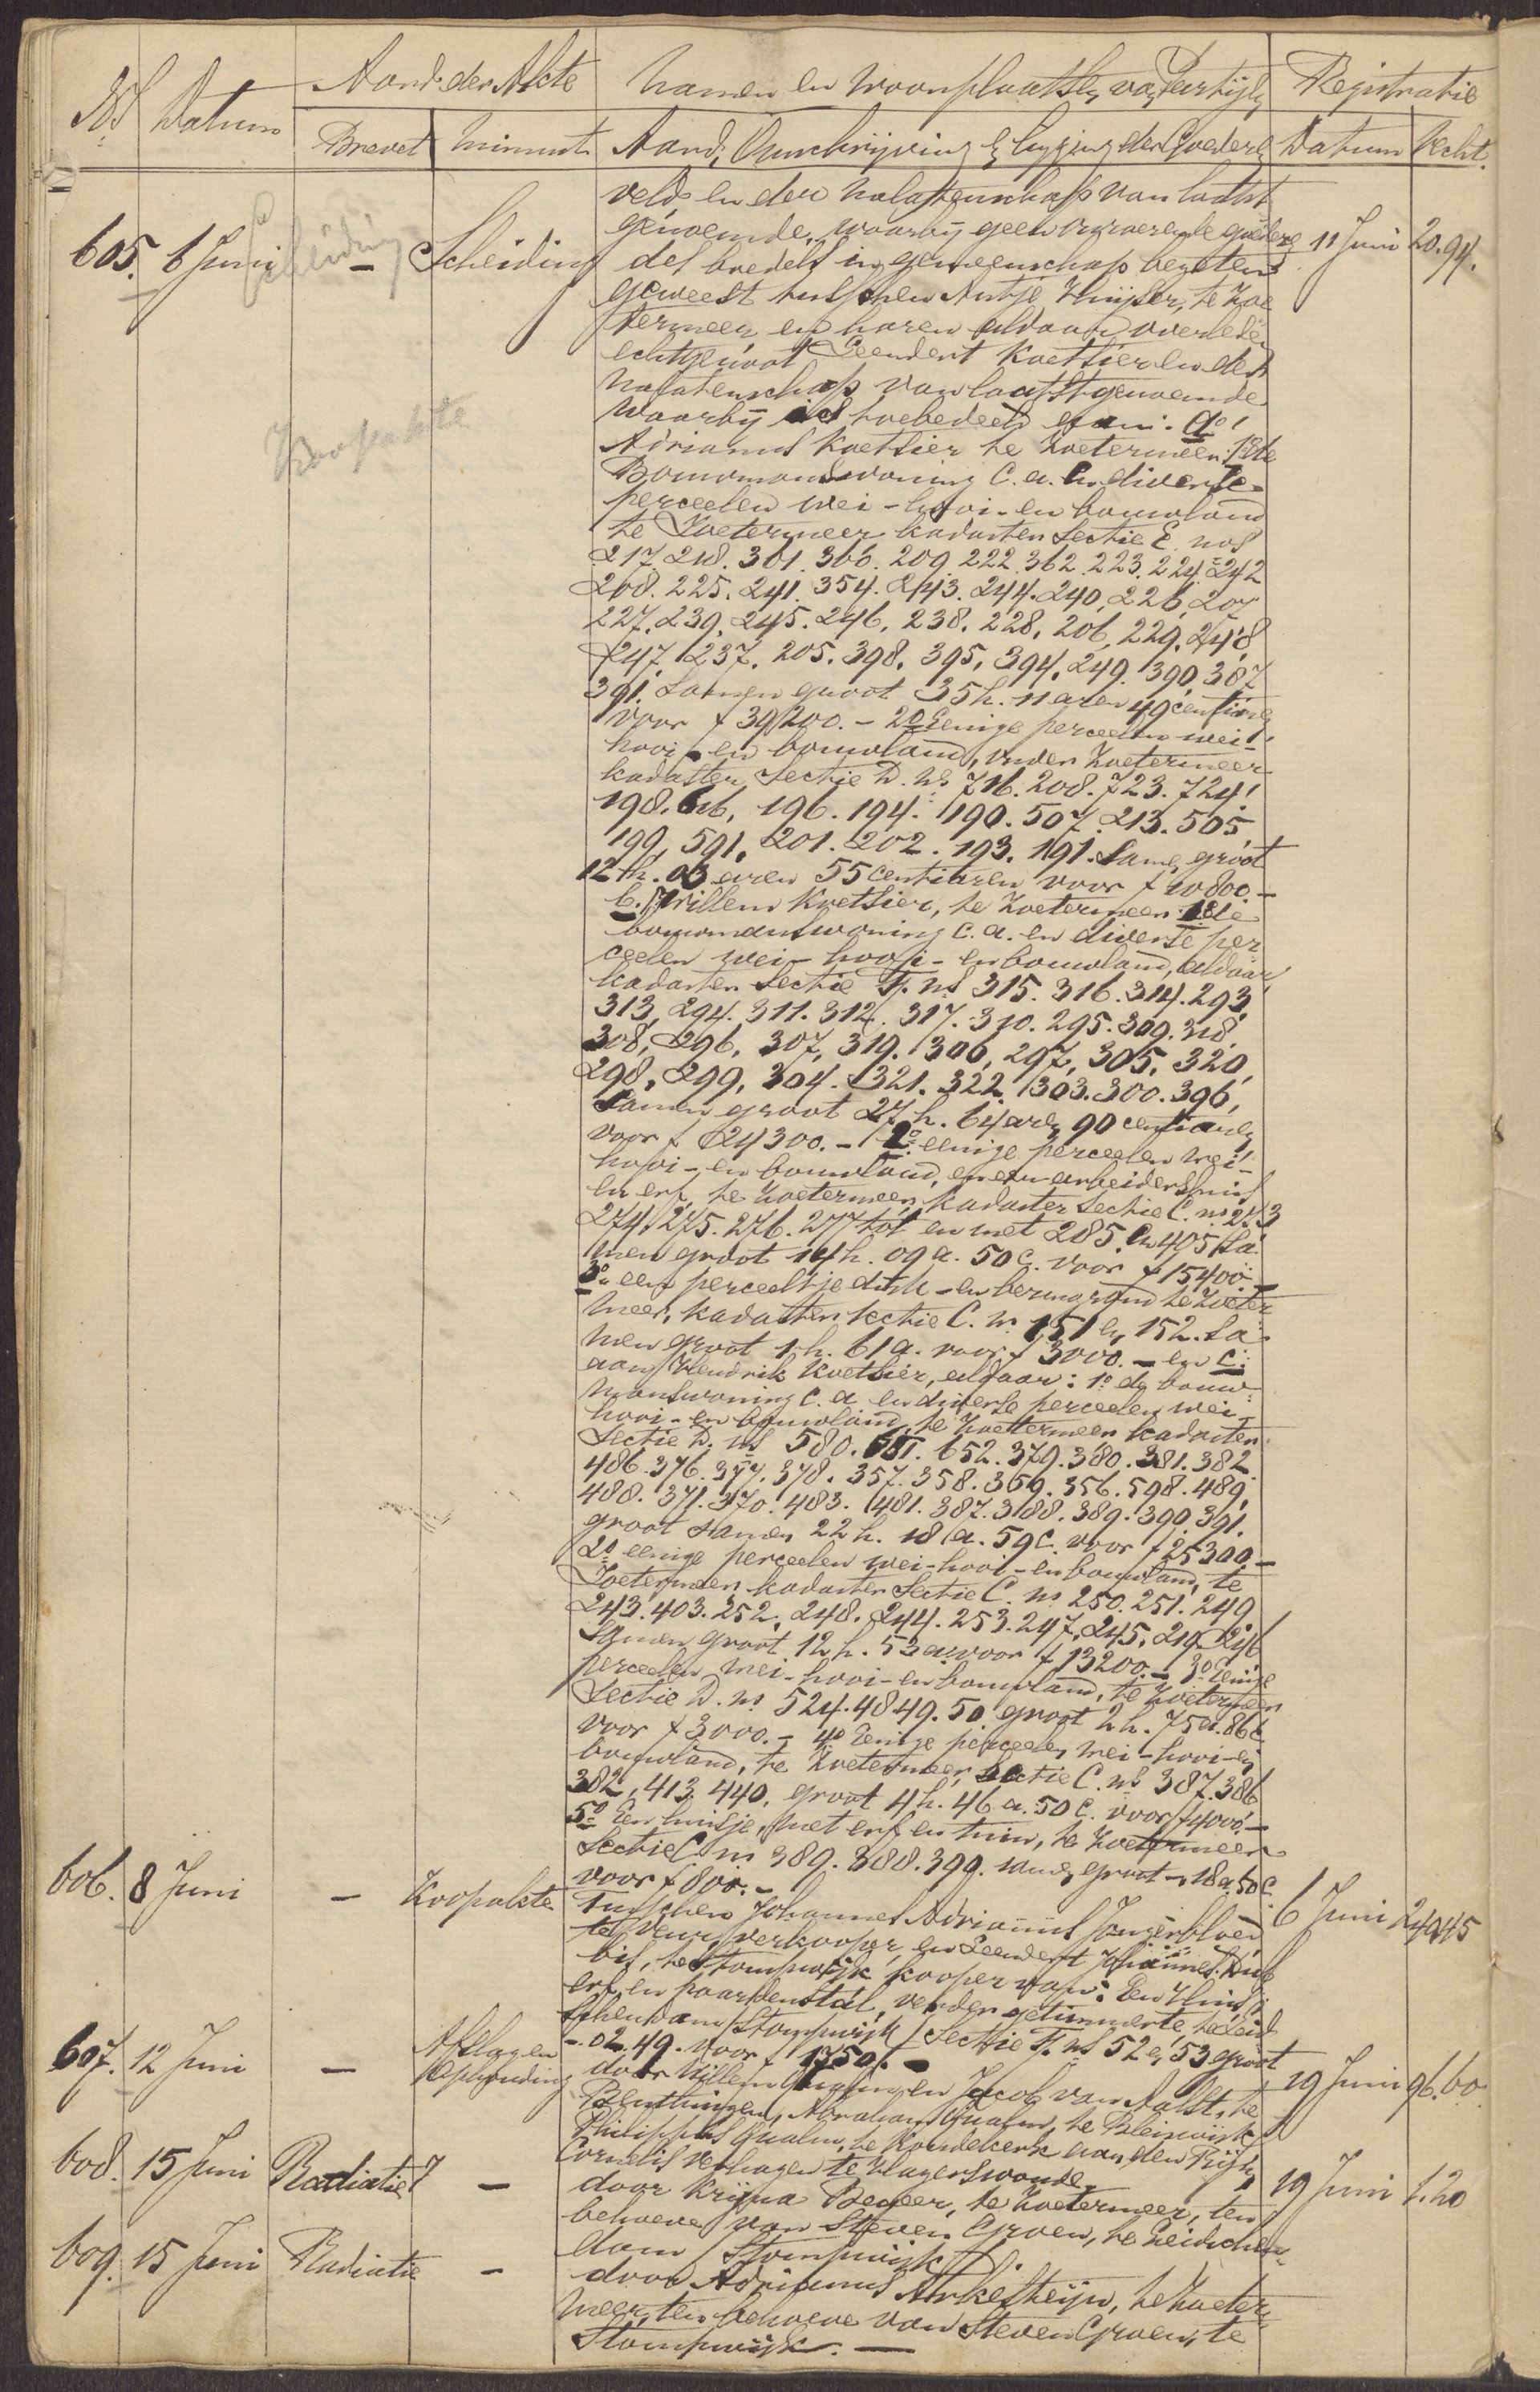 No Datum Aard der Akte Namen en Woonplaatsen van Partijen Registratie
Brevet Minuut Aard, Omschrijving & ligging der Goederen Datum Recht.
veld en der nalatenschap van laatst
genoemde, waarbij geen onroerende goederen
605. 6 Juni - Scheiding des boedels in gemeenschap bezeten 11 Juni 20.94.
geweest tusschen Antje Huijser, te Zoe
termeer en haren aldaar overleden
echtgenoot Leendert Koetsier en der
nalatenschap van laatstgenoemde
Koopakte
waarbij is toebedeeld aan: a.
Adrianus Koetsier te Zoetermeer: 1e de
Bouwmanswoning c.a. en diverse
perceelen wei- hooi- en bouwland
te Zoetermeer kadaster Sectie E. nos
217. 218. 361. 366. 209. 222. 362. 223. 224. 242
208. 225. 241. 354. 243. 244. 240. 226. 207
227. 239. 245. 246. 238. 228. 206. 229. 248.
247. 237. 205. 398. 395. 394. 249. 390. 387
391. Samen groot 35 h. 11 aren 49 centiaren
voor f 39200.- 2o Eenige perceelen wei-
hooi- en bouwland, onder Zoetermeer
kadaster Sectie D. nos 716. 208. 723. 724.
198. 616. 196. 194. 190. 507. 213. 505.
199. 591. 201. 202. 193. 191. Samen groot
12 h. 03 aren 55 centiaren voor f 10800.-
b. Willem Koetsier, te Zoetermeer: 1e de
bouwmanswoning c.a. en diverse per
ceelen wei- hooi- en bouwland, aldaar,
kadaster Sectie F. nos 315. 316. 314. 293.
313. 294. 311. 312. 317. 310. 295. 309. 318.
308. 296. 307. 319. 306. 297. 305. 320.
298. 299. 304. 321. 322. 303. 300. 396,
Samen groot 27 h. 64 aren 90 centiaren
voor f 24300.- 2o eenige perceelen wei-
hooi- en bouwland, en een arbeidershuis
en erf, te Zoetermeer, kadaster Sectie C. nos 273
274. 275. 276. 277 tot en met 285. en 405 Sa
men groot 14 h. 09 a. 50 c. voor f 15400.-
3o een perceeltje dijk- en bermgrond te Zoeter
meer, kadaster sectie C. no 151 en 152. Sa
men groot 1 h. 61 a. voor f 3000.- en c:
aan Hendrik Koetsier, aldaar: 1o de bouw
manswoning c.a. en diverse perceelen wei-
hooi- en bouwland, te Zoetermeer kadaster
Sectie D. nos 580. 652. 379. 380. 381. 382
486. 376. 377. 378. 357. 358. 369. 356. 598. 489.
488. 371. 370. 483. 481. 387. 388. 389. 390. 391.
groot samen 22 h. 18 a. 59 c. voor f 25300.-
2o eenige perceelen wei- hooi- en bouwland, te
Zoetermeer, kadaster Sectie C. no 250. 251. 249.
243. 403. 252. 248. 244. 253. 247. 245. 219. 246
Samen groot 12 h. 53 a. voor f 13200.- 3o Eenige
perceelen wei- hooi- en bouwland, te Zoetermeer
Sectie D. no 524. 48 49. 50. groot 2 h. 75 a. 86 c.
voor f 3000.- 4o Eenige perceelen wei- hooi- en
bouwland, te Zoetermeer, Sectie C. nos 387. 386
382. 413. 440. groot 4 h. 46 a. 50 c. voor f 4000.-
5o Een huisje, met erf en tuin, te Zoetermeer
Sectie C. no 389. 388. 399. samen groot - 18 a. 50 c.
voor f 800.-
606. 8 Juni - Koopakte Tusschen Johannes Adrianus Jongerbloed 6 Juni
te Veur, verkooper, en Leendert Johannes
te Stompwijk kooper van: Een Huis,
erf en paardenstal, verder getimmerte te Leid
schendam (Stompwijk) Sectie F. nos 52 en 53 groot
-.02.49. voor f 1350.-
607. 12 Juni - Afslag en ophouding door Willem en Jacob van Aalst, te 19 Juni 96.60
Benthuizen, Abraham Qualm, te Bleiswijk,
Philippus Qualm, te Koudekerk aan den Rijn,
Cornelis Verhagen te Hazerswoude.
608. 15 Juni Radiatie - door Krijna Bemer, te Zoetermeer, ten 19 Juni 1.20
behoeve van Steven Groen, te Leidschen
dam (Stompwijk).
609. 15 Juni Radiatie - door Adrianus Arkesteijn, te Zoeter
meer, ten behoeve van Steven Groen, te
Stompwijk. -